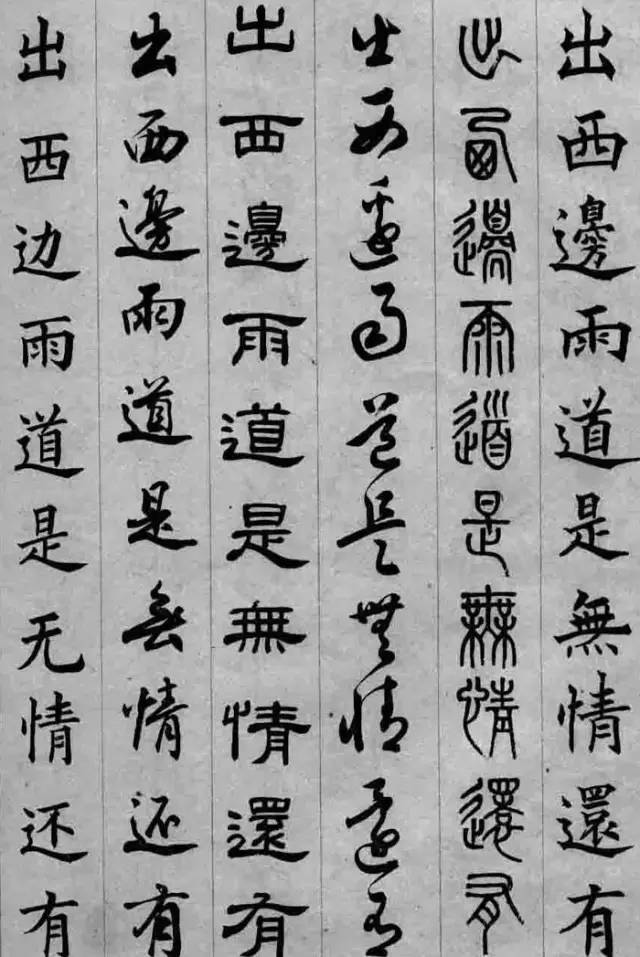 出西邊雨道是無情還有
出西邊雨道是無情還有
出西邊雨道是無情還有
出西邊雨道是無情還有
出西邊雨道是无情还有
出西边雨道是无情还有